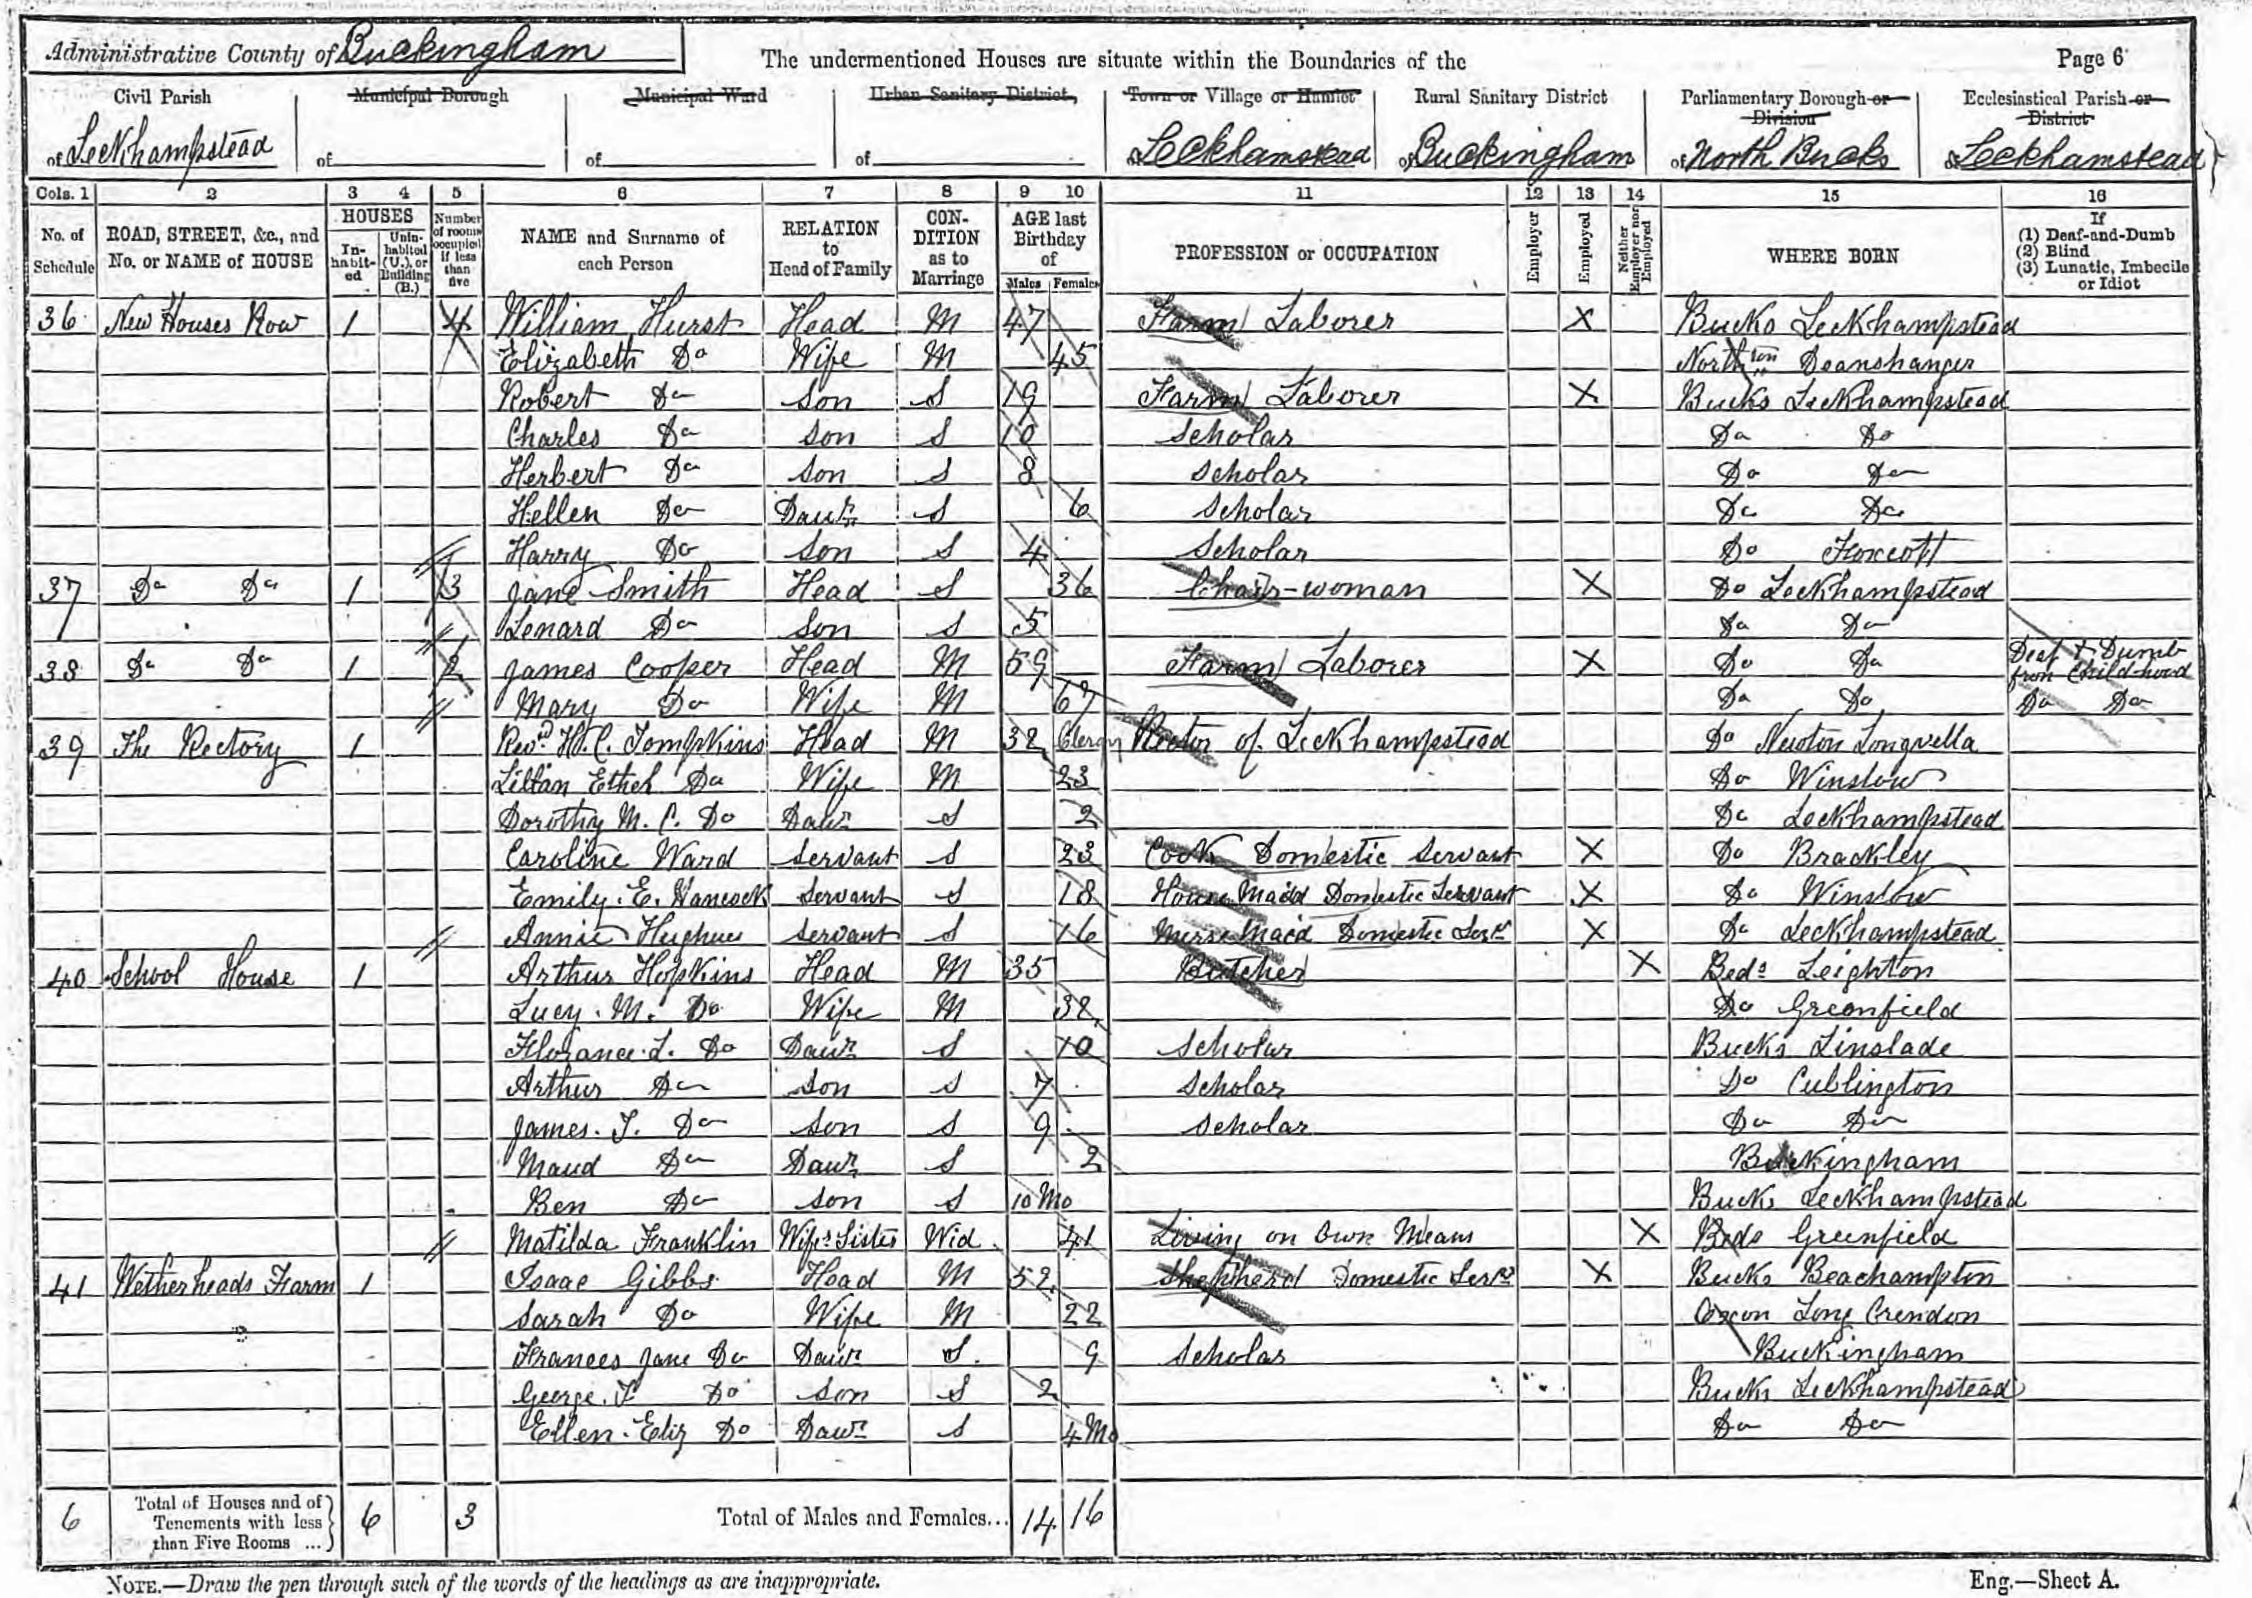 Administrative County of Buckingham The undermentioned Houses are situate within the Boundaries of the Page 6
Civil Parish Municipal Borough Municipal Ward Urban Sanitary District, Town or Village or Hamlet Rural Sanitary District Parliamentary Borough or Division Ecclesiastical Parish or District
of Leckhampstead of of of of Leckhamstead of Buckingham of North Bucks of Leckhamstead
Cols. 1 2 3 4 5 6 7 8 9 10 11 12 13 14 15 16
No. of Schedule ROAD, STREET, &c., and No. or NAME of HOUSE HOUSES Inhabited Uninhabited (U.), or Building (B.) Number of rooms occupied if less than five NAME and Surname of each Person RELATION to Head of Family CONDITION as to Marriage AGE last Birthday of Males Females PROFESSION or OCCUPATION Employer Employed Neither Employer nor Employed WHERE BORN If (1) Deaf-and-Dumb (2) Blind (3) Lunatic, Imbecile or Idiot
36 New Houses Row 1 4 William Hurst Head M 47 Farm Laborer X Bucks Leckhampstead
Elizabeth Do Wife M 45 Northton Deanshanger
Robert Do Son S 19 Farm Laborer X Bucks Leckhampstead
Charles Do Son S 10 Scholar Do Do
Herbert Do Son S 8 Scholar Do Do
Hellen Do Daur S 6 Scholar Do Do
Harry Do Son S 4 Scholar Do Foxcott
37 Do Do 1 3 Jane Smith Head S 36 Chair-woman X Do Leckhampstead
Lenard Do Son S 5 Do Do
38 Do Do 1 2 James Cooper Head M 59 Farm Laborer X Do Do Deaf & Dumb from Childhood
Mary Do Wife M 67 Do Do Do Do
39 The Rectory 1 Revd H. C. Tompkins Head M 32 Clergy Rector of Leckhampstead Do Newton Longvella
Lillan Ethel Do Wife M 23 Do Winslow
Dorothy M. C. Do Daur S 2 Do Leckhampstead
Caroline Ward Servant S 23 Cook Domestic Servant X Do Brackley
Emily. E. Hancock Servant S 18 House Maid Domestic Servant X Do Winslow
Annie Hughes Servant S 16 Nurse Maid Domestic Servt X Do Leckhampstead
40 School House 1 Arthur Hopkins Head M 35 Butcher X Beds Leighton
Lucy. M. Do Wife M 32 Do Greenfield
Florance. L. Do Daur S 10 Scholar Bucks Linslade
Arthur Do Son S 7 Scholar Do Cublington
James. T. Do Son S 9 Scholar Do Do
Maud Do Daur S 2 Buckingham
Ben Do Son S 10 Mo Bucks Leckhampstead
Matilda Franklin Wifes Sister Wid 41 Living on Own Means X Beds Greenfield
41 Wetherheads Farm 1 Isaac Gibbs Head M 52 Shepherd Domestic Servt X Bucks Beachampton
Sarah Do Wife M 22 Oxon Long Crendon
Frances Jane Do Daur S 9 Scholar Buckingham
George. T Do Son S 2 Bucks Leckhampstead
Ellen. Eliz Do Daur S 4 Mo Do Do
6 Total of Houses and of Tenements with less than Five Rooms ... 6 3 Total of Males and Females... 14 16
NOTE.—Draw the pen through such of the words of the headings as are inappropriate. Eng.—Sheet A.